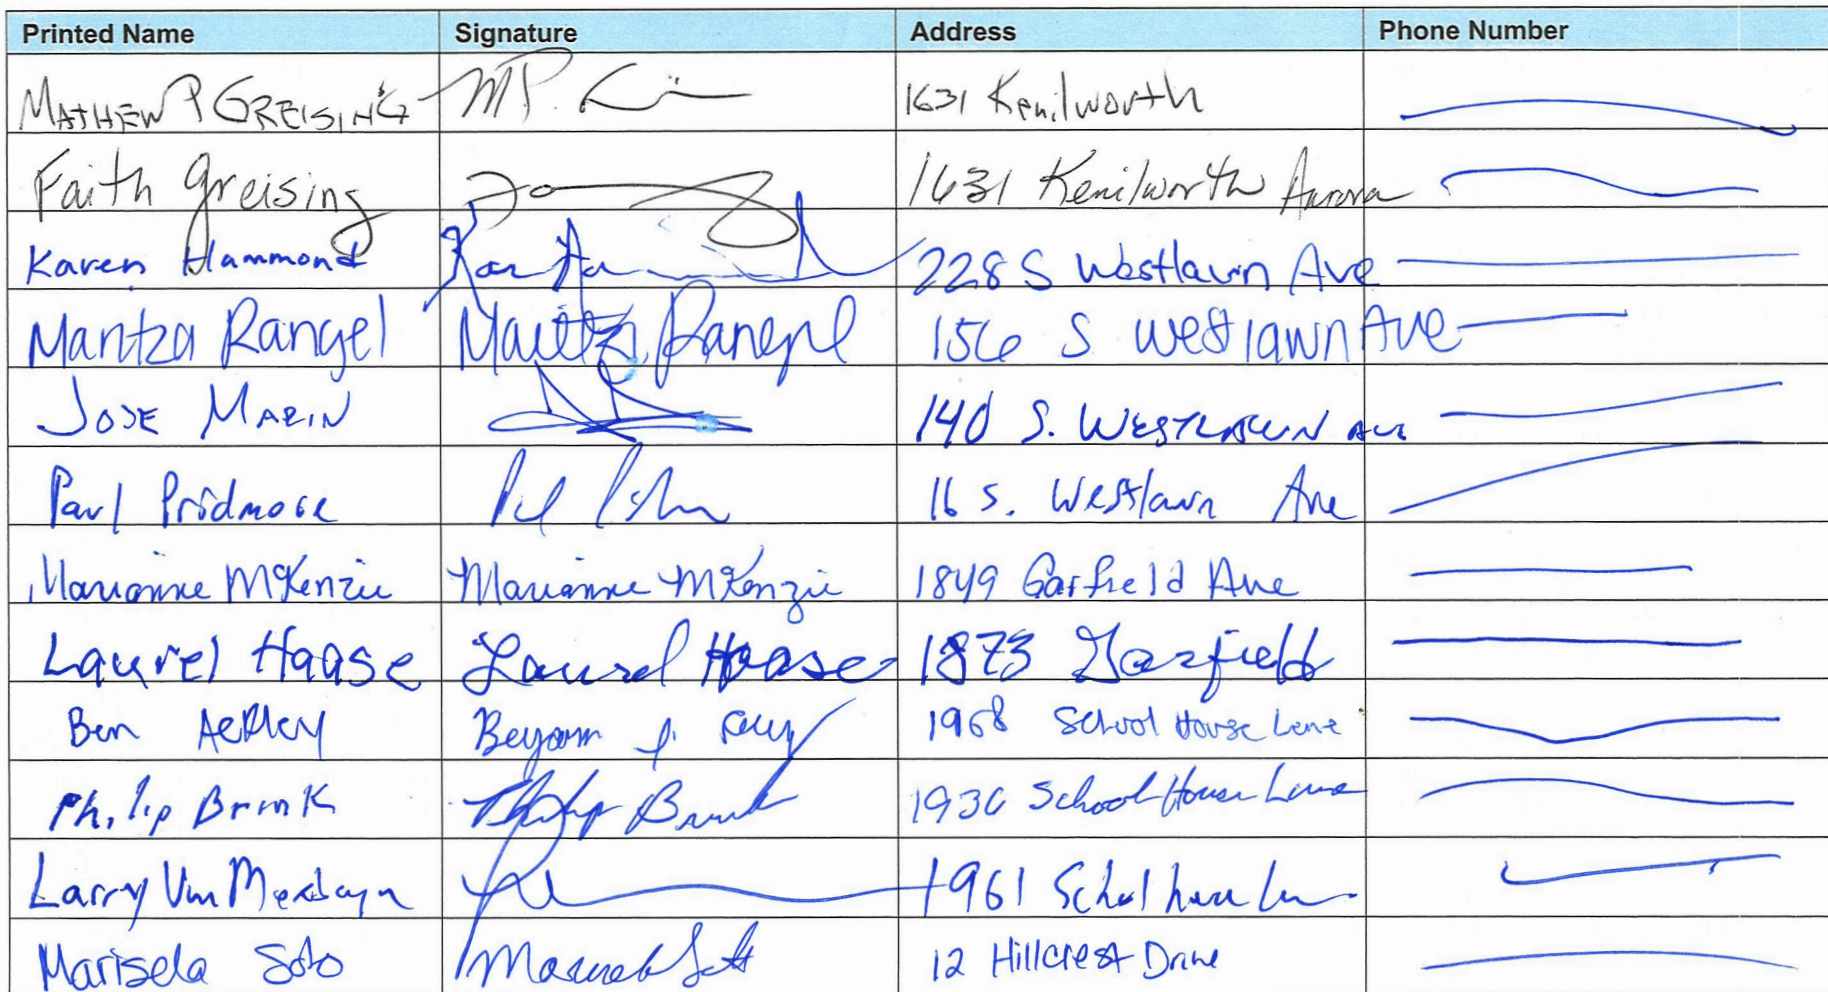 Printed Name Signature Address Phone Number
MATHEW P GREISING MP. 1631 Kenilworth
Faith Greising 1631 Kenilworth Aurora
Karen Hammond 228 S Westlawn Ave
Maritza Rangel Maritza Rangel 156 S westlawn Ave
JOSE MARIN 140 S. WESTLAWN AVE
Paul Pridmore 16 S. Westlawn Ave
Marianne McKenzie Marianne McKenzie 1849 Garfield Ave
Laurel Haase Laurel Haase 1873 Garfield
Ben 1968 School House Lane
Philip Brink Philip Brink 1930 School House Lane
Larry Van 1961
Marisela Soto 12 Hillcrest Drive